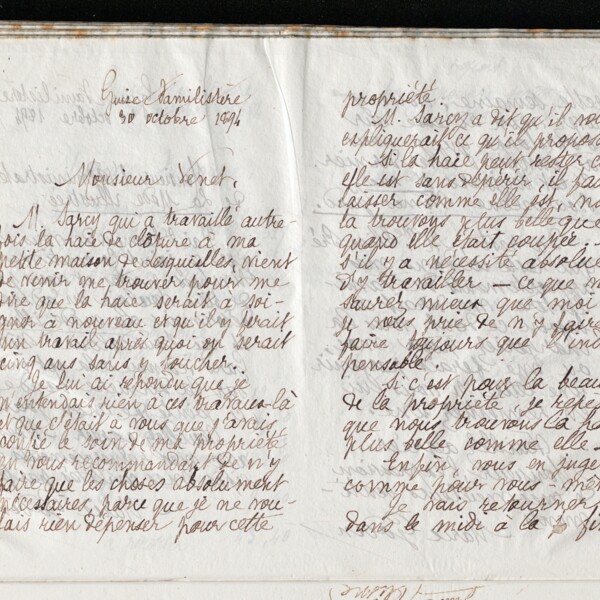 Guise Familistère
30 octobre 1894
Monsieur Venet,
M. Sarcy qui a travaillé autre-
fois la haie de clôture à ma
petite maison de Lesquielles, vient
de venir me trouver pour me
dire que la haie serait à soi-
gner à nouveau et qu'il y ferait
un travail après quoi on serait
cinq ans sans y toucher.
Je lui ai répondu que je
n'entendais rien à ces travaux-là
et que c'était à vous que j'avais
confié le soin de ma propriété
en vous recommandant de n'y
faire que les choses absolument
nécessaires, parce que je ne vou-
lais rien dépenser pour cette
propriété.
M. Sarcy a dit qu'il vous
expliquerait ce qu'il propos
Si la haie peut rester c
elle est sans dépérir, il fau
laisser comme elle est, no
la trouvons plus belle que
quand elle était coupée.
S'il y a nécessité absolue
d'y travailler – ce que
saurez mieux que moi
je vous prie de n'y
faire toujours que l'ind
pensable.
Si c'est pour la beau
de la propriété je répè
que nous trouvons la ha
plus belle comme elle
Enfin, vous en juge
comme pour vous-mêm
Je vais retourner
dans le midi à la fi